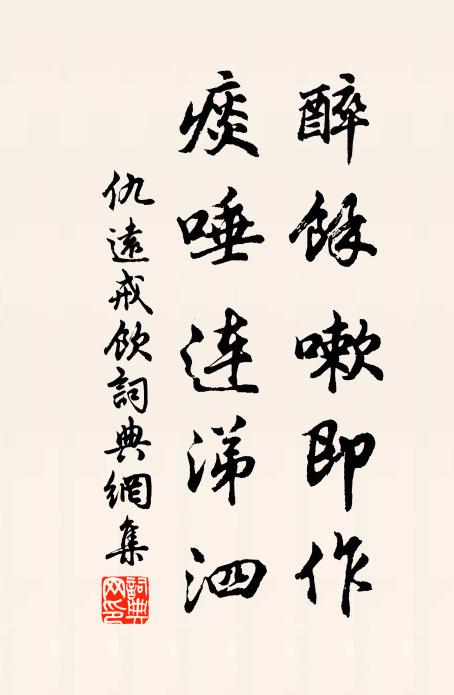 醉餘嗽即作
痰唾连涕泗
仇遠戒飲詞典網集
詞典
网印